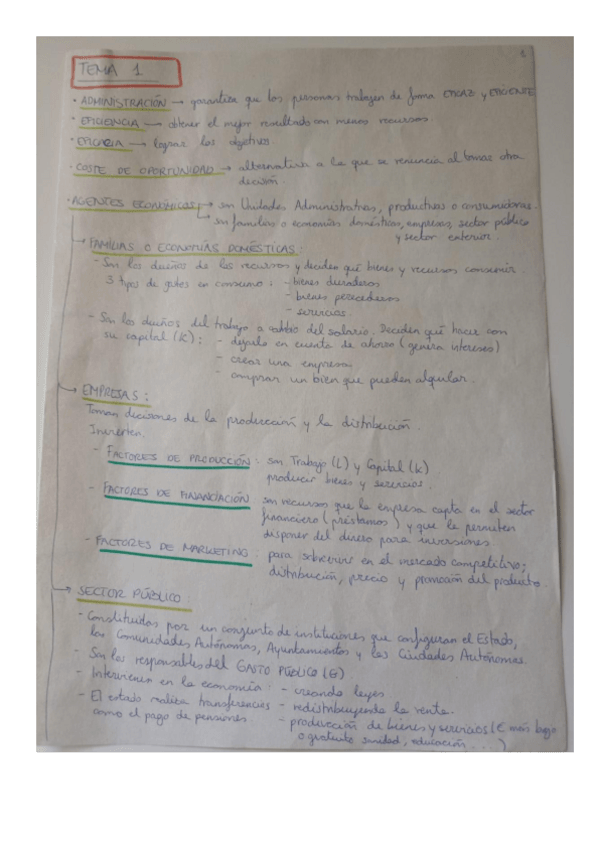 1
TEMA 1
· ADMINISTRACIÓN → garantiza que las personas trabajen de forma EFICAZ y EFICIENTE
· EFICIENCIA → obtener el mejor resultado con menos recursos.
· EFICACIA → lograr los objetivos.
· COSTE DE OPORTUNIDAD → alternativa a la que se renuncia al tomar otra
decisión.
· AGENTES ECONÓMICOS → son Unidades Administrativas, productivas o consumidoras.
→ son familias o economías domésticas, empresas, sector público
y sector exterior.
→ FAMILIAS O ECONOMÍAS DOMÉSTICAS:
- Son los dueños de los recursos y deciden qué bienes y recursos consumir.
3 tipos de gastos en consumo: - bienes duraderos
- bienes perecederos
- servicios.
- Son los dueños del trabajo a cambio del salario. Deciden qué hacer con
su capital (K): - dejarlo en cuenta de ahorro (genera intereses)
- crear una empresa
- comprar un bien que puedan alquilar.
→ EMPRESAS:
Toman decisiones de la producción y la distribución.
Invierten.
- FACTORES DE PRODUCCIÓN: son Trabajo (L) y Capital (K)
producir bienes y servicios.
- FACTORES DE FINANCIACIÓN son recursos que la empresa capta en el sector
financiero (préstamos) y que le permiten
disponer del dinero para inversiones
- FACTORES DE MARKETING: para sobrevivir en el mercado competitivo;
distribución, precio y promoción del producto.
→ SECTOR PÚBLICO:
- Constituidas por un conjunto de instituciones que configuran el Estado,
las Comunidades Autónomas, Ayuntamientos y las Ciudades Autónomas.
- Son los responsables del GASTO PÚBLICO (G)
- Intervienen en la economía: - creando leyes.
- El estado realiza transferencias - redistribuyendo la renta.
como el pago de pensiones. - producción de bienes y servicios (€ más bajo
o gratuito sanidad, educación ...)